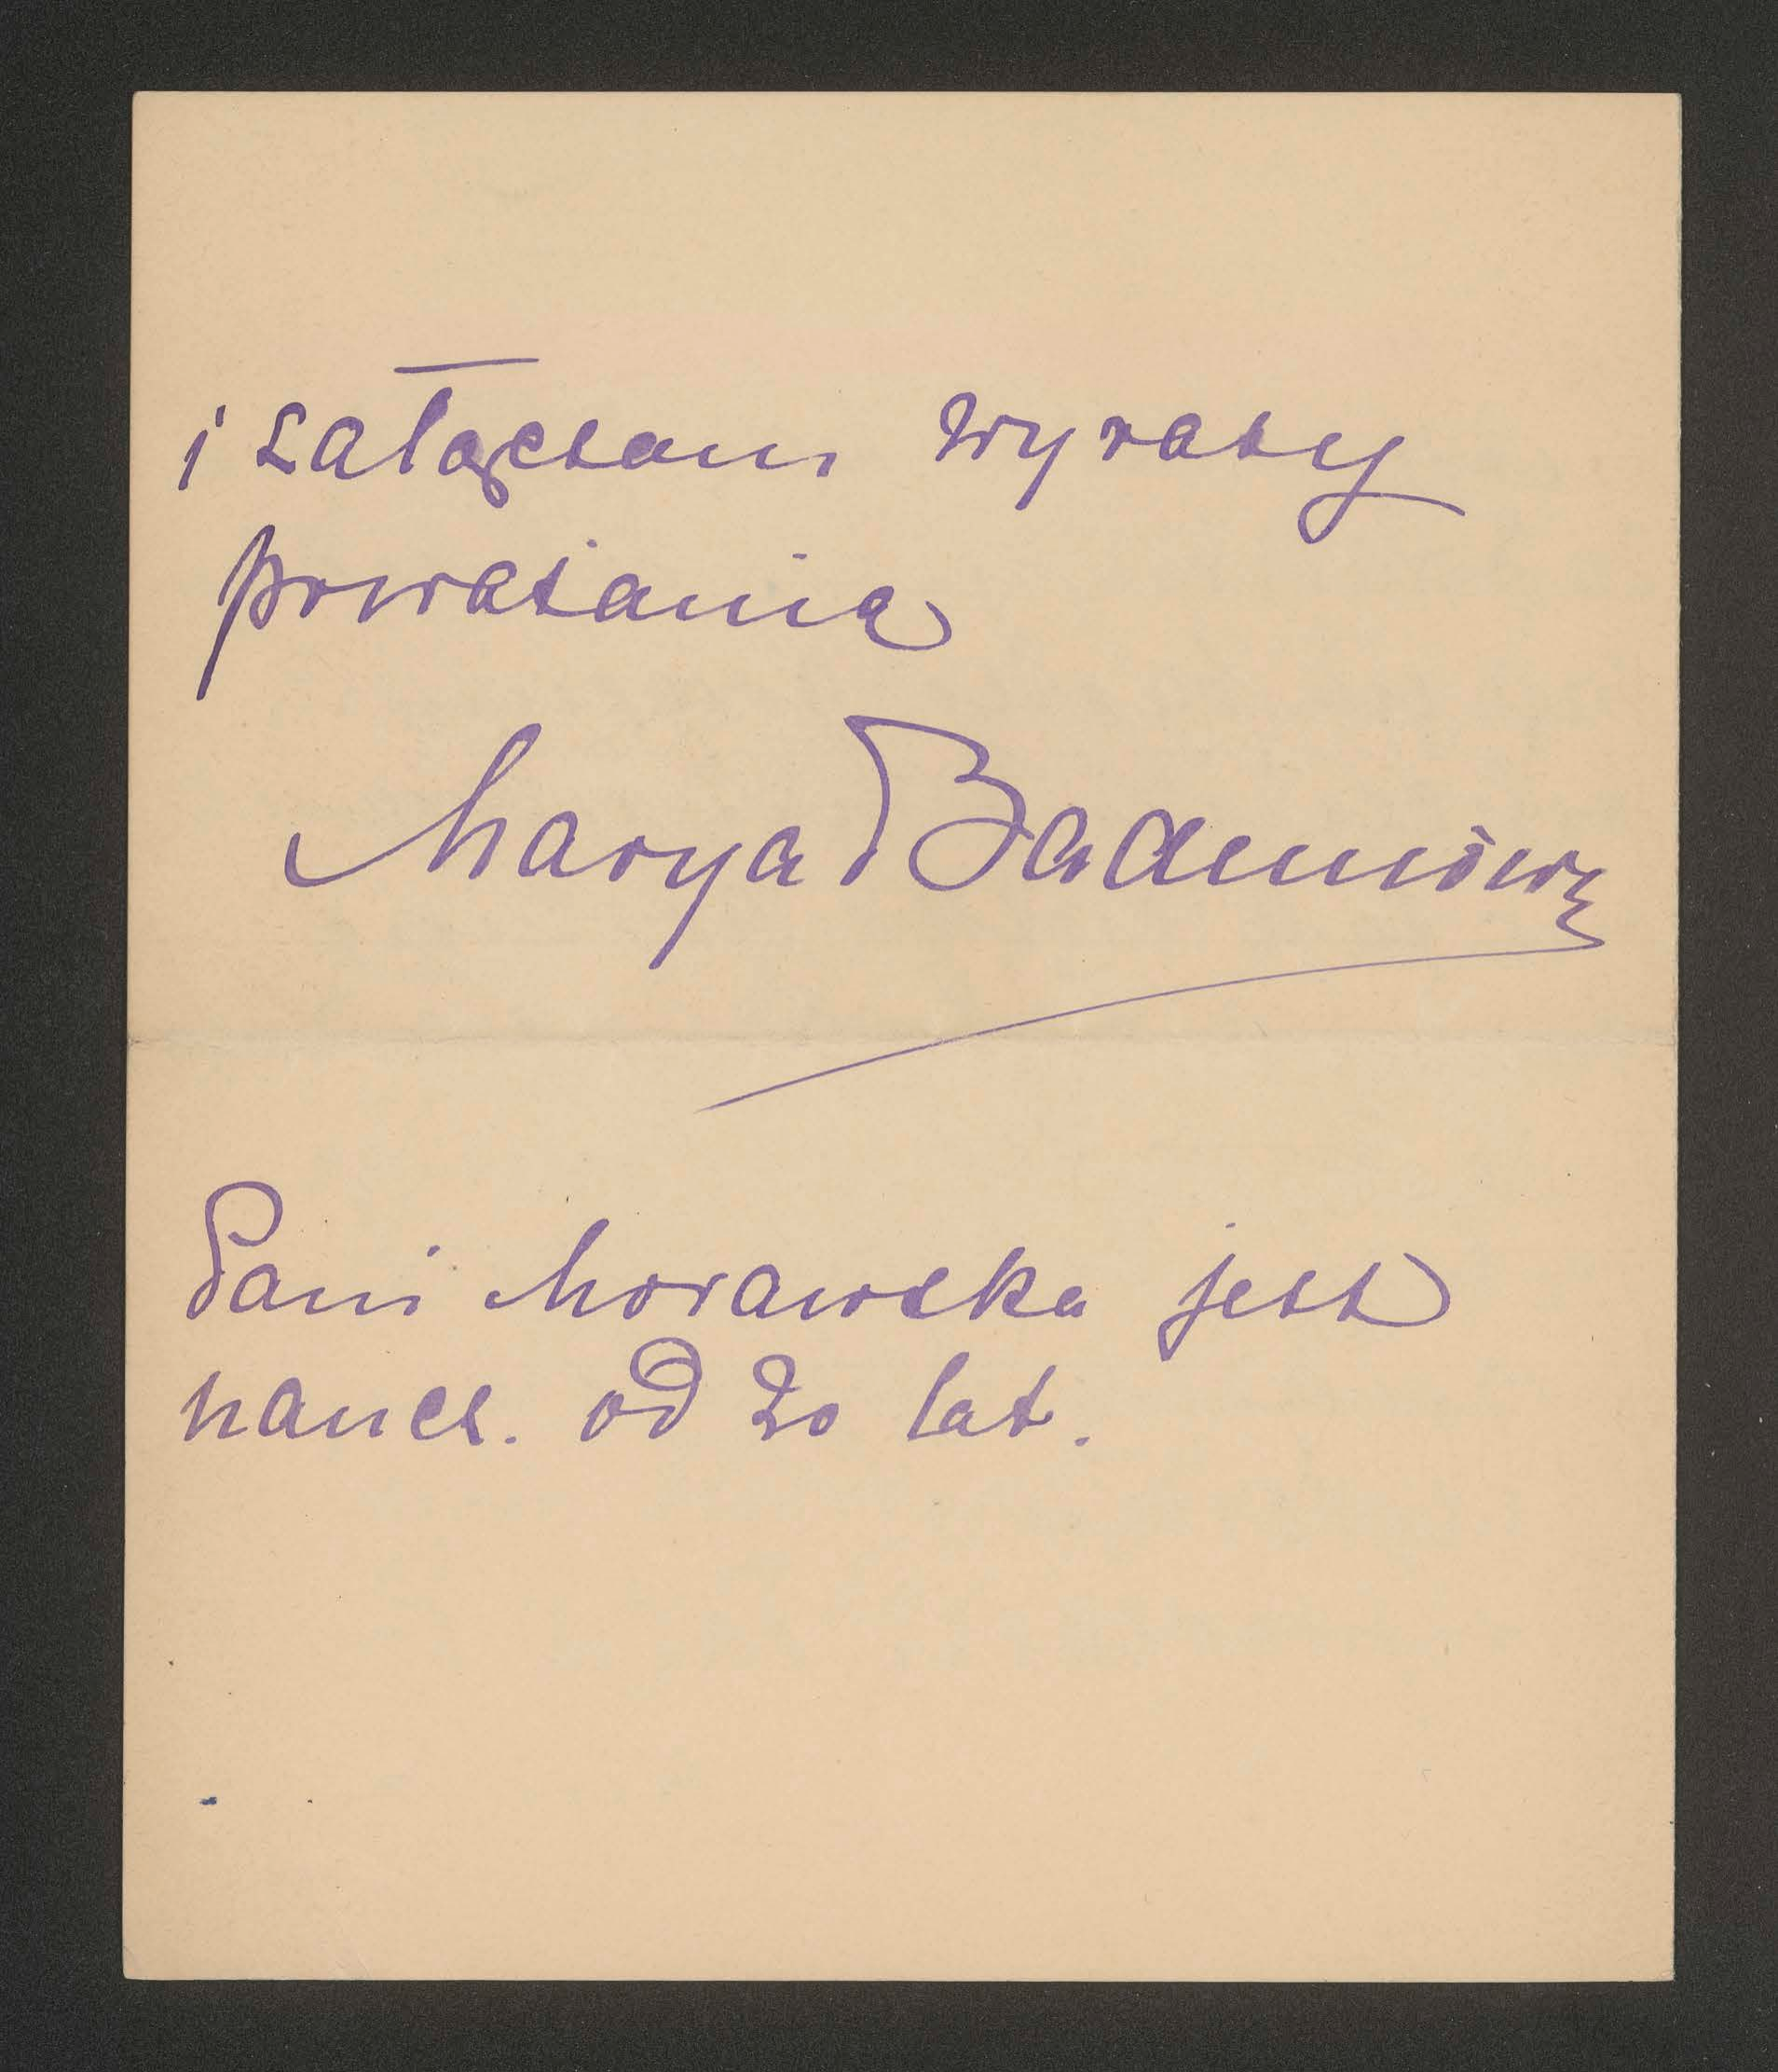 i załączam wyrazy
poważania
Marya Badeniowa
Pani Morawska jest
naucz. od 20 lat.